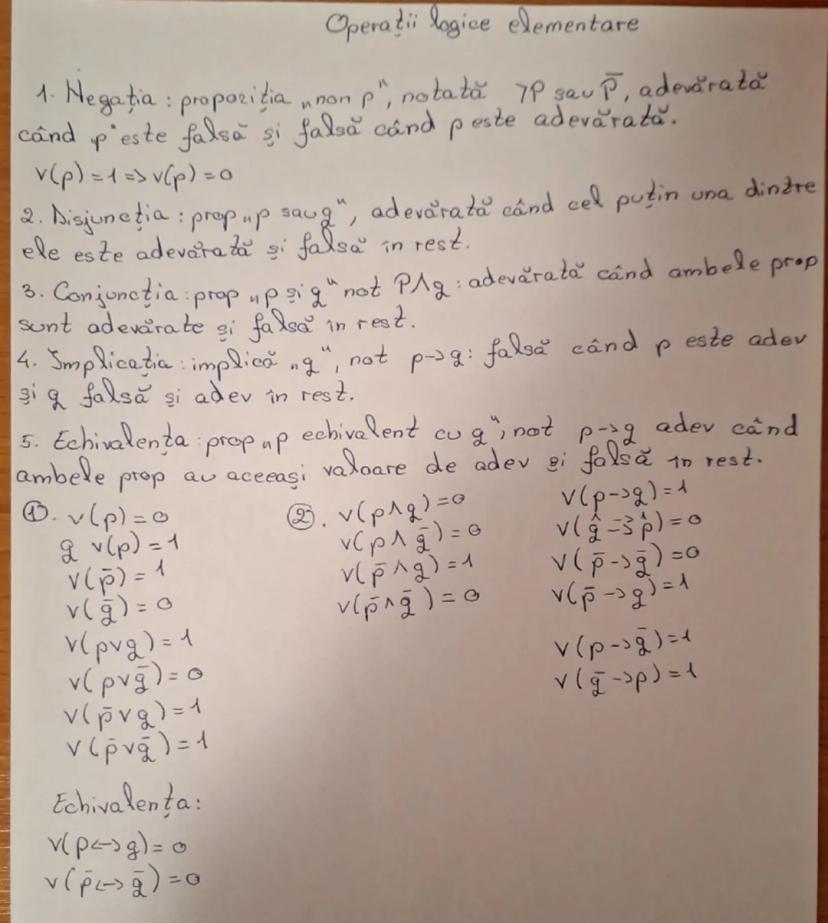 Operații logice elementare
1. Negația: propoziția „non p", notată ⌉p sau p̄, adevărată
când p este falsă și falsă când p este adevărată.
v(p)=1=>v(p)=0
2. Disjuncția: prop „p sau g", adevărată când cel puțin una dintre
ele este adevărată și falsă în rest.
3. Conjuncția: prop „p și g" not P∧g: adevărată când ambele prop
sunt adevărate și falsă în rest.
4. Implicația: implică „g", not p->g: falsă când p este adev
și g falsă și adev în rest.
5. Echivalența: prop „p echivalent cu g", not p->g adev când
ambele prop au aceeași valoare de adev și falsă în rest.
①. v(p)=0
g v(p)=1
v(p̄)=1
v(ḡ)=0
v(p∨g)=1
v(p∨ḡ)=0
v(p̄∨g)=1
v(p̄∨ḡ)=1
②. v(p∧g)=0
v(p∧ḡ)=0
v(p̄∧g)=1
v(p̄∧ḡ)=0
v(p->g)=1
v(p̄->ḡ)=0
v(p̄->g)=1
v(p->ḡ)=1
v(ḡ->p)=1
Echivalența:
v(p<->g)=0
v(p̄<->ḡ)=0